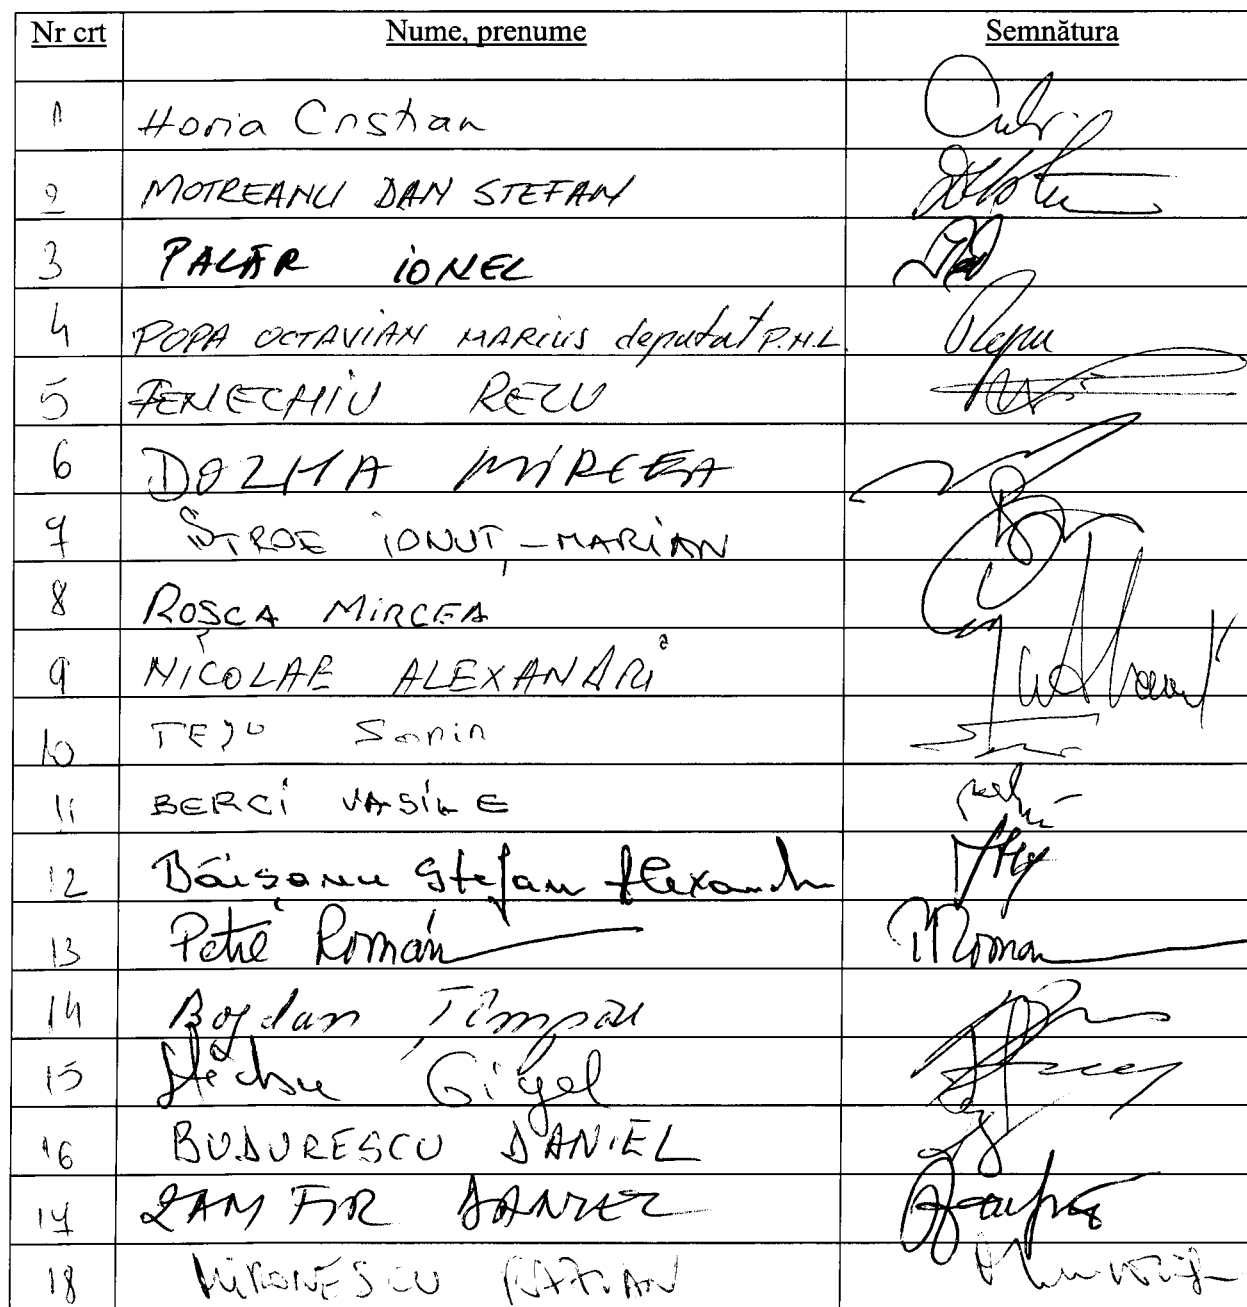 Nr crt Nume, prenume Semnătura
1 Horia Cristian
2 MOTREANU DAN STEFAN
3 PALĂR IONEL
4 POPA OCTAVIAN MARIUS deputat P.N.L. Popa
5 FENECHIU RELU
6 DOLHA MIRCEA
7 STROE IONUȚ-MARIAN
8 ROȘCA MIRCEA
9 NICOLAE ALEXANDRI
10 TEJU Sorin
11 BERCI VASILE
12 Băișanu Ștefan Alexandru
13 Petre Roman PRoman
14 Bogdan Țîmpău
15 Știrbu Gigel
16 BUDURESCU DANIEL
17 ZAMFIR DANIEL
18 MIRONESCU RĂZVAN